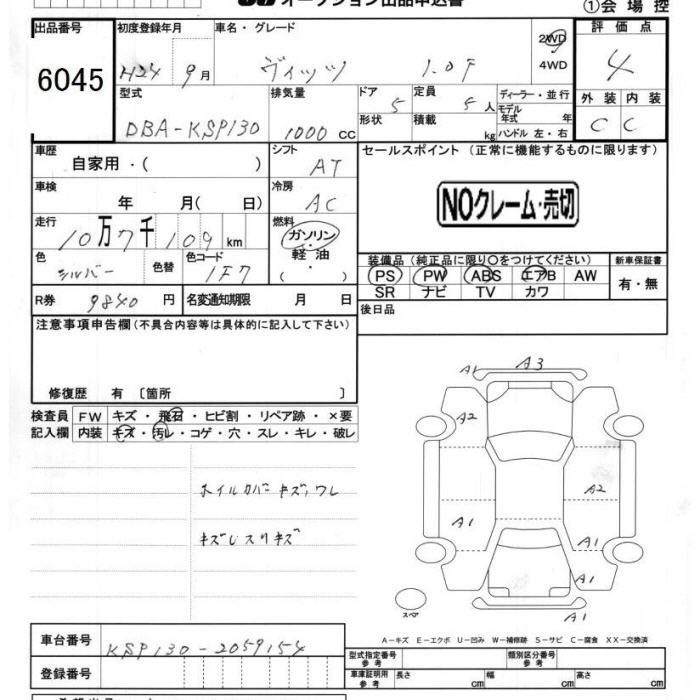 オークション出品申込書
①会場控
出品番号
6045
初度登録年月
H24 9月
車名・グレード
ヴィッツ 1.0F
2WD
4WD
評価点
4
外装 内装
C C
型式
DBA-KSP130
排気量
1000 CC
ドア
5
形状
定員
5人
積載
kg
ディーラー・並行
モデル年式 年
ハンドル 左・右
車歴
自家用・( )
シフト
AT
セールスポイント (正常に機能するものに限ります)
NOクレーム・売切
車検
年 月( 日)
冷房
AC
走行
10万7千109km
燃料
ガソリン
軽油
( )
色
シルバー
色替
色コード
1F7
装備品 (純正品に限り〇をつけてください)
PS PW ABS エアB AW
SR ナビ TV カワ
新車保証書
有・無
R券
9840円
名変通知期限 月 日
後日品
注意事項申告欄(不具合内容等は具体的に記入して下さい)
修復歴 有〔箇所 〕
検査員記入欄
FW キズ・飛石・ヒビ割・リペア跡・×要
内装 キズ・汚レ・コゲ・穴・スレ・キレ・破レ
ホイルカバーキズ,ワレ
キズレスリキズ
A1 A3
A2
A2
A1 A1
A1
A1
スペア
A-キズ E-エクボ U-凹み W-補修跡 S-サビ C-腐食 XX-交換済
車台番号
KSP130-2059154
登録番号
型式指定番号
参考
類別区分番号
参考
車庫証明用
参考
長さ cm 幅 cm 高さ cm